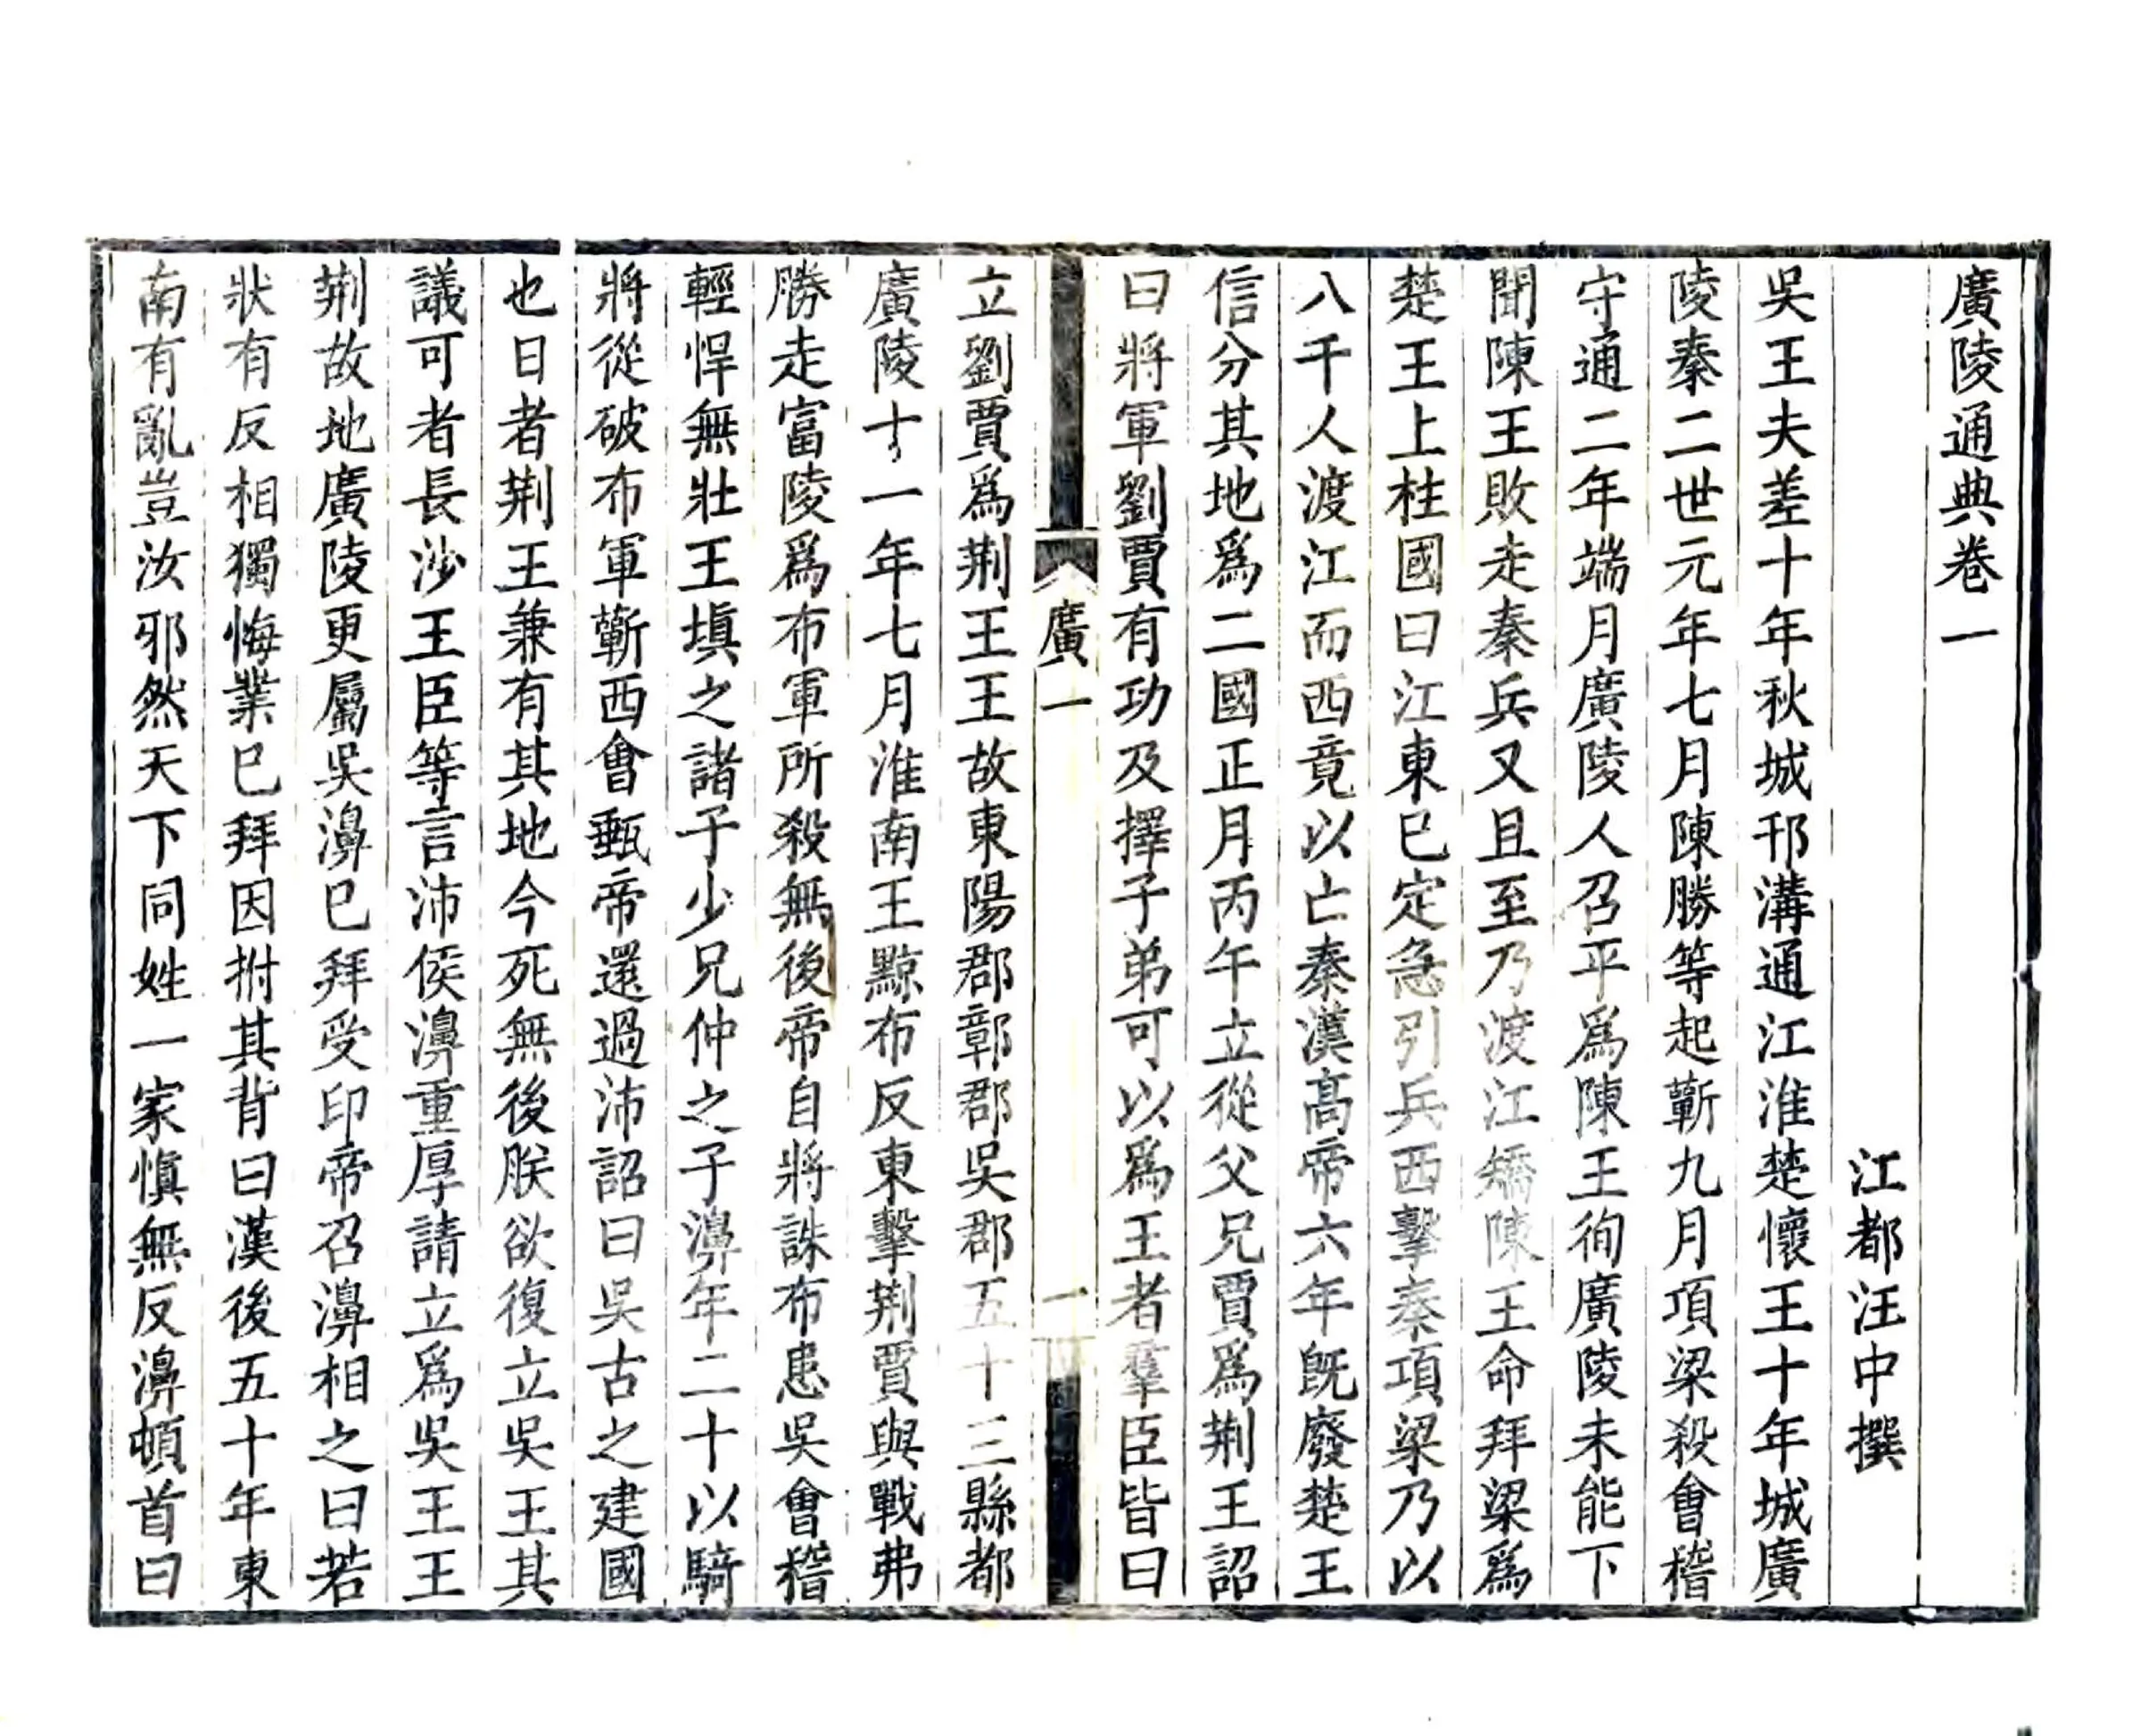 廣陵通典卷一
江都汪中撰
吳王夫差十年秋城邗溝通江淮楚懷王十年城廣
陵秦二世元年七月陳勝等起蘄九月項梁殺會稽
守通二年端月廣陵人召平爲陳王徇廣陵未能下
聞陳王敗走秦兵又且至乃渡江矯陳王命拜梁爲
楚王上柱國曰江東已定急引兵西擊秦項梁乃以
八千人渡江而西竟以亡秦漢高帝六年旣廢楚王
信分其地爲二國正月丙午立從父兄賈爲荆王詔
曰將軍劉賈有功及擇子弟可以爲王者羣臣皆曰
廣一
一
立劉賈爲荆王王故東陽郡鄣郡吳郡五十三縣都
廣陵十一年七月淮南王黥布反東擊荆賈與戰弗
勝走富陵爲布軍所殺無後帝自將誅布患吳會稽
輕悍無壯王塡之諸子少兄仲之子濞年二十以騎
將從破布軍蘄西會甀帝還過沛詔曰吳古之建國
也日者荆王兼有其地今死無後朕欲復立吳王其
議可者長沙王臣等言沛侯濞重厚請立爲吳王王
荆故地廣陵更屬吳濞已拜受印帝召濞相之曰若
狀有反相獨悔業已拜因拊其背曰漢後五十年東
南有亂豈汝邪然天下同姓一家愼無反濞頓首曰